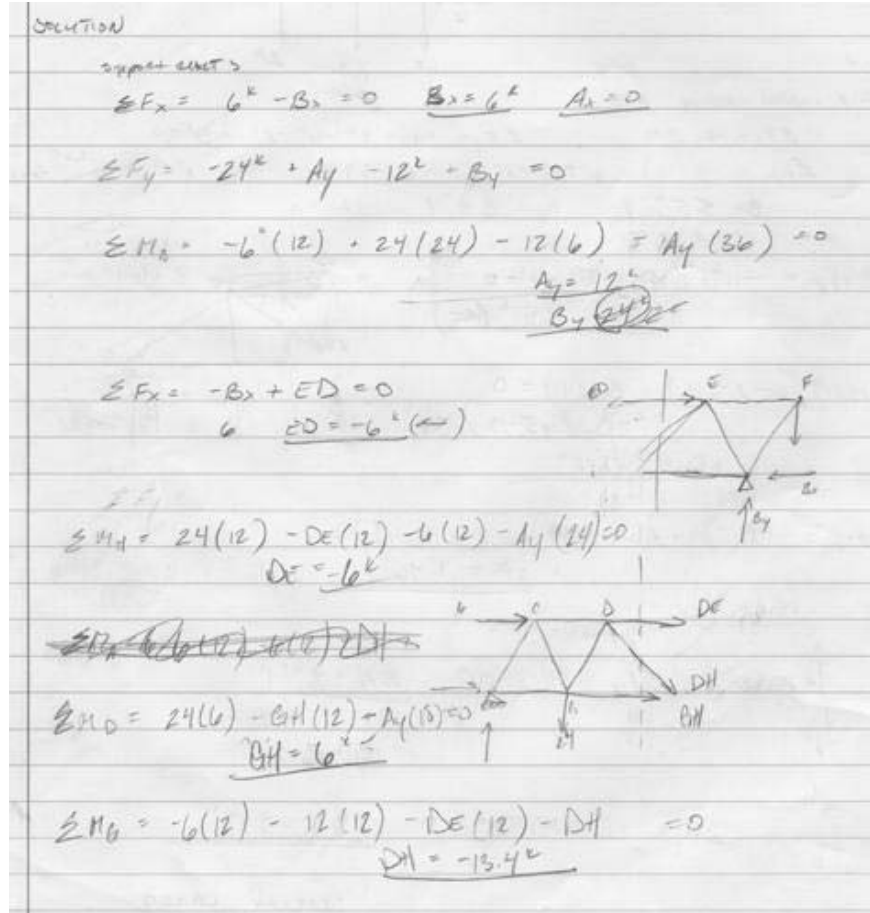 SOLUTION
support
ΣFx = 6ᵏ - Bx = 0 Bx = 6ᵏ Ax = 0
ΣFy = -24ᵏ + Ay - 12ᵏ + By = 0
-6ᵏ(12) + 24(24) - 12(6) = Ay(36) = 0
Ay = 12ᵏ
By 24ᵏ
ΣFx = -Bx + ED = 0
6 ED = -6ᵏ (←)
E F
By
ΣMH = 24(12) - DE(12) - 6(12) - Ay(24) = 0
DE = -6ᵏ
6 C D DE
DH
GH
24
ΣMD = 24(6) - GH(12) - Ay(18) = 0
GH = 6ᵏ
ΣMG = -6(12) - 12(12) - DE(12) - DH = 0
DH = -13.4ᵏ